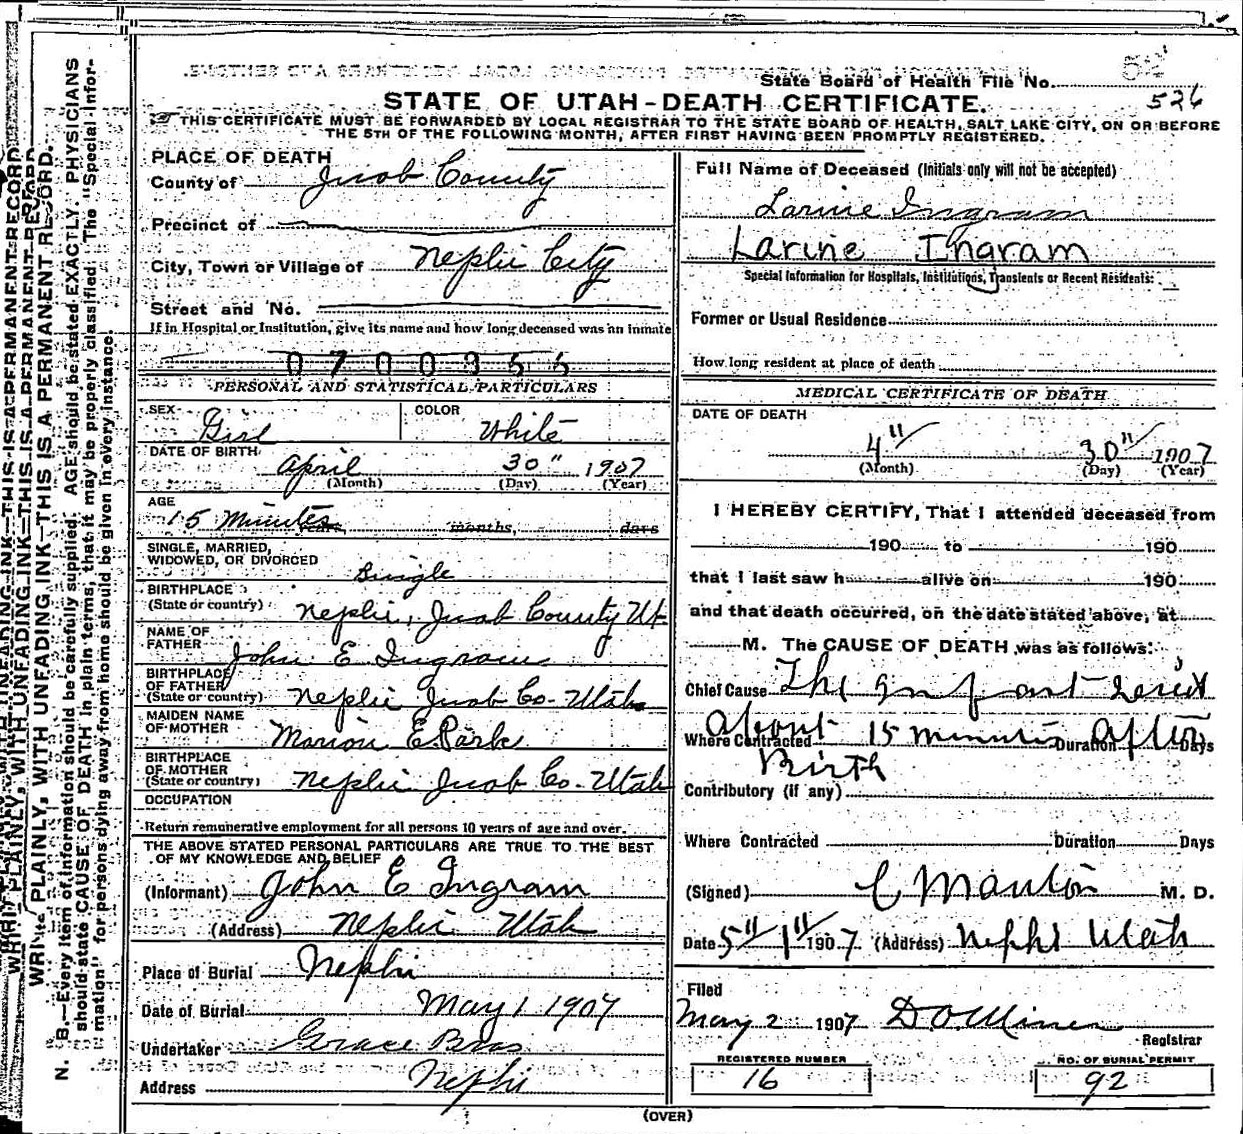 State Board of Health File No. 52
526
STATE OF UTAH-DEATH CERTIFICATE.
THIS CERTIFICATE MUST BE FORWARDED BY LOCAL REGISTRAR TO THE STATE BOARD OF HEALTH, SALT LAKE CITY, ON OR BEFORE
THE 5TH OF THE FOLLOWING MONTH, AFTER FIRST HAVING BEEN PROMPTLY REGISTERED.
WRITE PLAINLY, WITH UNFADING INK—THIS IS A PERMANENT RECORD.
N. B.—Every item of information should be carefully supplied. AGE should be stated EXACTLY. PHYSICIANS
should state CAUSE OF DEATH in plain terms, that it may be properly classified. The "Special Infor-
mation" for persons dying away from home should be given in every instance.
PLACE OF DEATH
County of Juab County
Precinct of
City, Town or Village of Nephi City
Street and No.
If in Hospital or Institution, give its name and how long deceased was an inmate
0700355
PERSONAL AND STATISTICAL PARTICULARS
SEX Girl COLOR White
DATE OF BIRTH April 30" 1907
(Month) (Day) (Year)
AGE
15 Minutes years, months, days
SINGLE, MARRIED,
WIDOWED, OR DIVORCED Single
BIRTHPLACE
(State or country) Nephi, Juab County Ut
NAME OF
FATHER John E Ingram
BIRTHPLACE
OF FATHER
(State or country) Nephi Juab Co. Utah
MAIDEN NAME
OF MOTHER Marion E Park
BIRTHPLACE
OF MOTHER
(State or country) Nephi Juab Co. Utah
OCCUPATION
Return remunerative employment for all persons 10 years of age and over.
THE ABOVE STATED PERSONAL PARTICULARS ARE TRUE TO THE BEST
OF MY KNOWLEDGE AND BELIEF
(Informant) John E Ingram
(Address) Nephi Utah
Place of Burial Nephi
Date of Burial May 1 1907
Undertaker Grace Bros
Address Nephi
Full Name of Deceased (Initials only will not be accepted)
Larine Ingram
Larine Ingram
Special Information for Hospitals, Institutions, Transients or Recent Residents:
Former or Usual Residence
How long resident at place of death
MEDICAL CERTIFICATE OF DEATH
DATE OF DEATH
4" 30" 1907
(Month) (Day) (Year)
I HEREBY CERTIFY, That I attended deceased from
190 to 190
that I last saw h alive on 190
and that death occurred, on the date stated above, at
M. The CAUSE OF DEATH was as follows:
Chief Cause The infant lived
about 15 minutes After
Where Contracted Duration Days
Birth
Contributory (if any)
Where Contracted Duration Days
(Signed) C Mauton M. D.
Date 5" 1" 1907 (Address) Nephi Utah
Filed
May 2 1907 D O Miner
Registrar
REGISTERED NUMBER
16
NO. OF BURIAL PERMIT
92
(OVER)